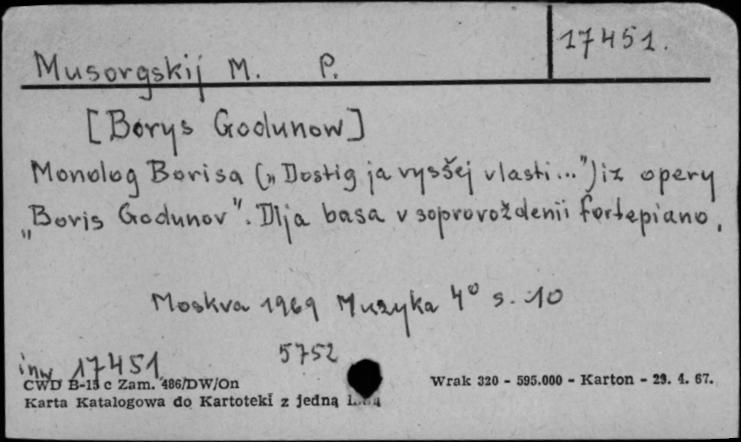 17451.
Musorgskij M. P.
[Borys Godunow]
Monolog Borisa („Dostig ja vysšej vlasti...") iz opery
„Boris Godunov". Dlja basa v soprovoždenii fortepiano.
Moskva 1969 Muzyka 4° s. 10
5752
inw 17451
CWD B-13 c Zam. 486/DW/On
Wrak 320 - 595.000 - Karton - 29. 4. 67.
Karta Katalogowa do Kartoteki z jedną